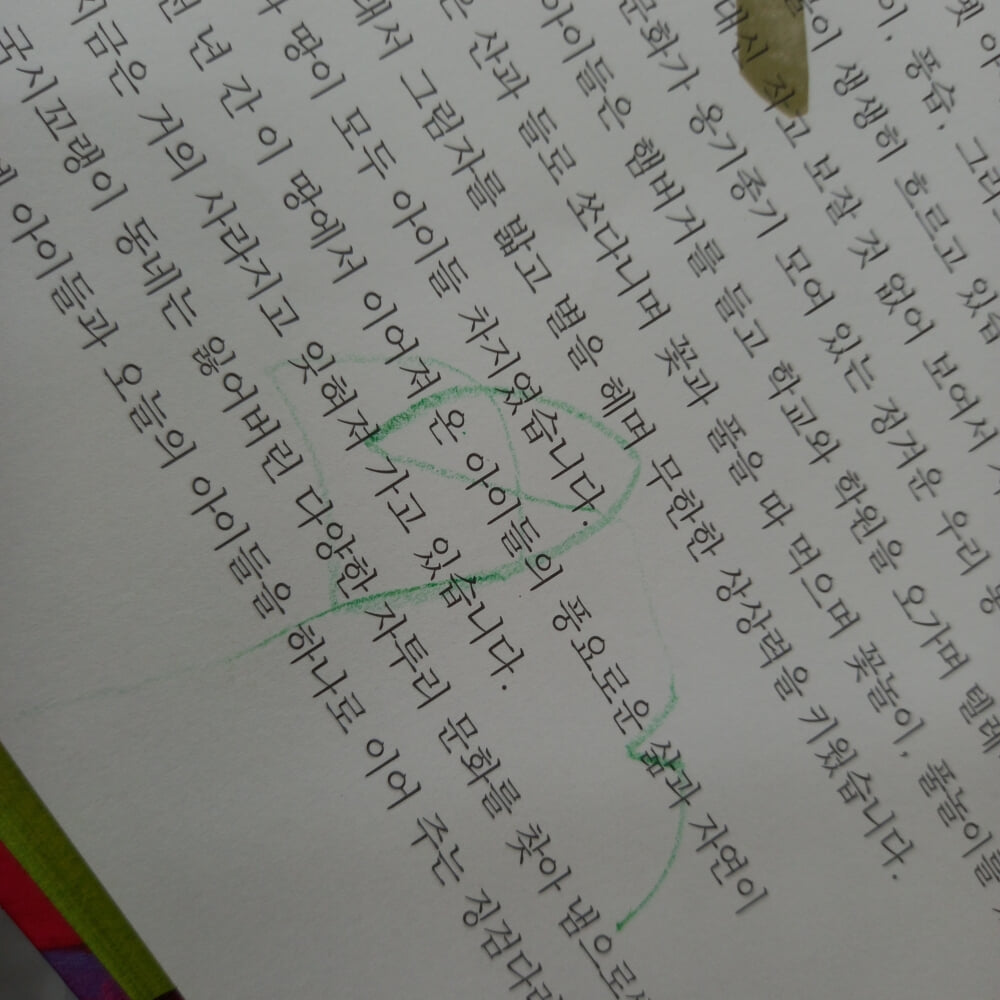 옛
풍습, 그리
생생히 흐르고 있습
대신 작고 보잘 것 없어 보여서
문화가 옹기종기 모여 있는 정겨운 우리 동
아이들은 햄버거를 들고 학교와 학원을 오가며 텔레
은 산과 들로 쏘다니며 꽃과 풀을 따 먹으며 꽃놀이, 풀놀이를
래서 그림자를 밟고 별을 헤며 무한한 상상력을 키웠습니다.
땅이 모두 아이들 차지였습니다.
천 년 간 이 땅에서 이어져 온 아이들의 풍요로운 삶과 자연이
지금은 거의 사라지고 잊혀져 가고 있습니다.
국시꼬랭이 동네는 잃어버린 다양한 자투리 문화를 찾아 냄으로써
아이들과 오늘의 아이들을 하나로 이어 주는 징검다리